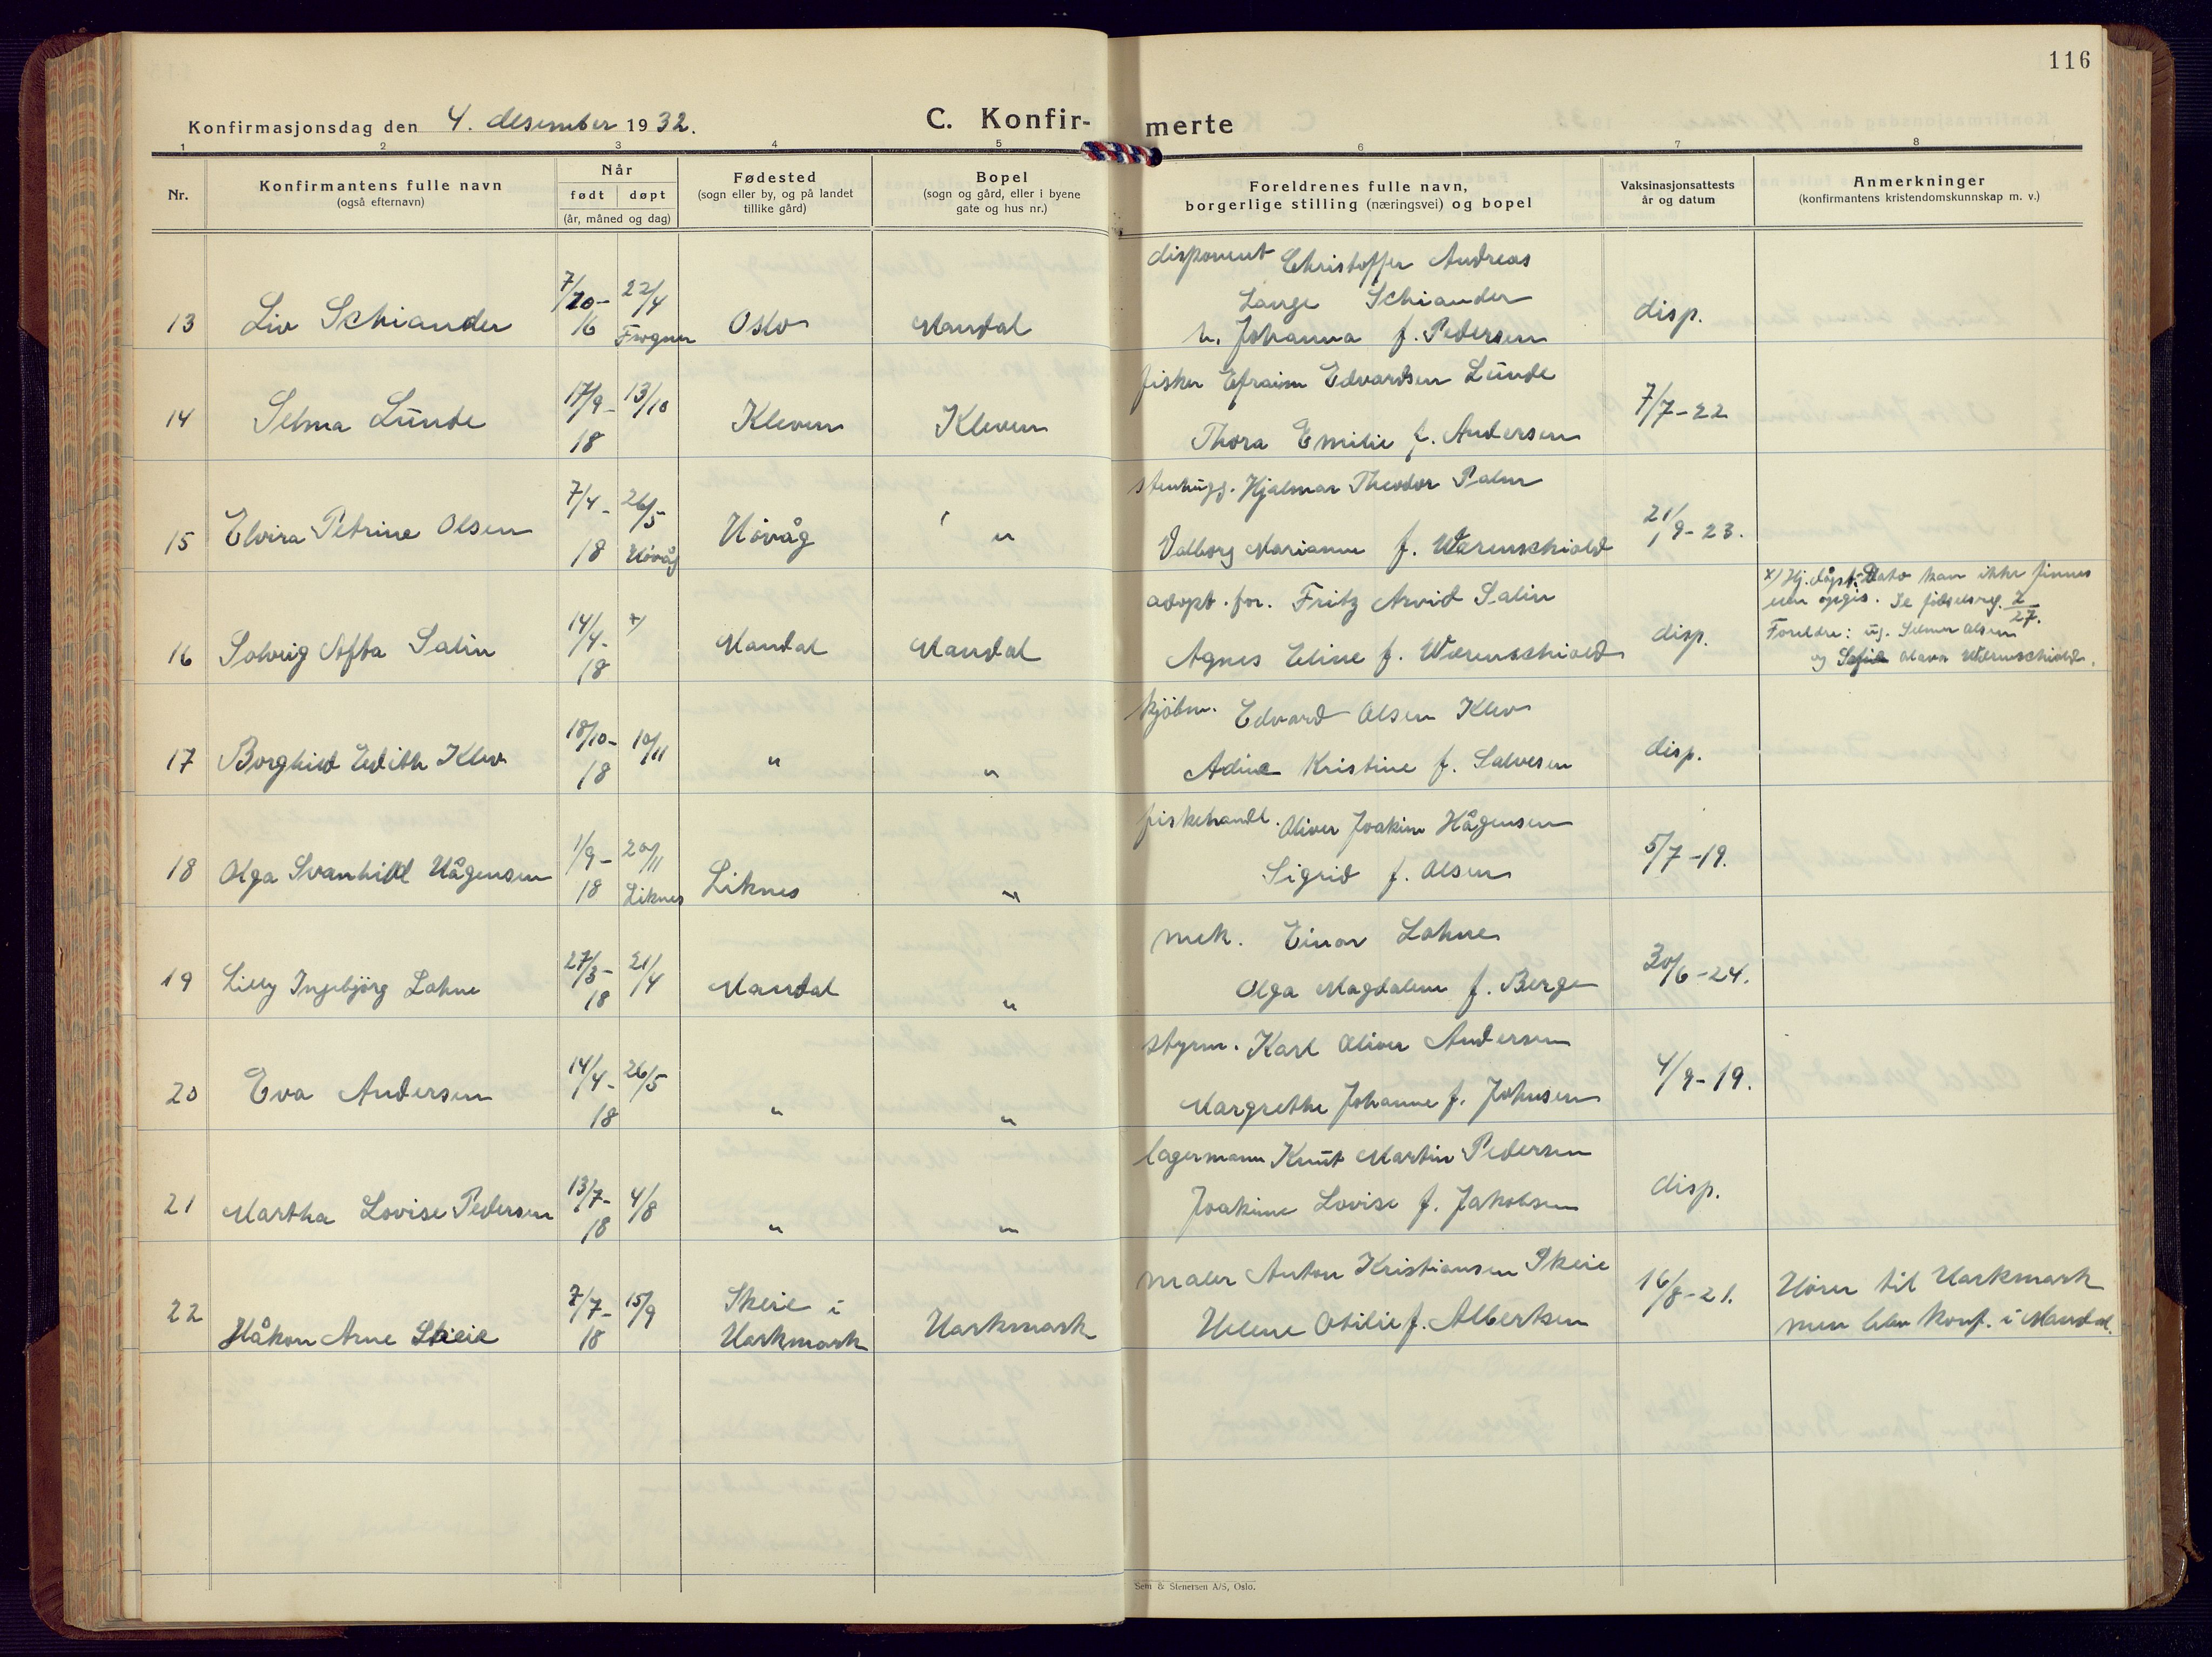 116
Konfirmasjonsdag den 4. desember 1932.
C. Konfir-
merte
1 2 3 4 5 6 7 8
Nr.
Konfirmantens fulle navn
(også efternavn)
Når
født døpt
(år, måned og dag)
Fødested
(sogn eller by, og på landet
tillike gård)
Bopel
(sogn og gård, eller i byene
gate og hus nr.)
Foreldrenes fulle navn,
borgerlige stilling (næringsvei) og bopel
Vaksinasjonsattests
år og datum
Anmerkninger
(konfirmantens kristendomskunnskap m. v.)
disponent Christoffer Andreas
Lange Schiander
13 Liv Schiander 7/10-16 22/4 Frogner Oslo Mandal h. Johanna f. Pedersen disp.
fisker Efraim Edvardsen Lunde
14 Selma Lunde 17/9-18 13/10 Kleven Kleven Thora Emilie f. Andersen 7/7-22
stenhugg. Hjalmar Theodor Palm
15 Elvira Petrine Olsen 7/4-18 26/5 Høvåg Høvåg " Valborg Marianne f. Wærenschiold 21/9-23.
adopt. for. Fritz Arvid Salin
16 Solveig Asta Salin 14/4-18 x) Mandal Mandal Agnes Eline f. Wærenschiold disp.
x) Hj. døpt. Dato kan ikke finnes
eller opgis. Se fødselsreg. 2/27.
Foreldre: ug. Selmer Olsen
og Sofie Olava Wærenschiold.
kjøbm. Edvard Olsen Klev
17 Borghild Edith Klev 18/10-18 10/11 " " Adine Kristine f. Salvesen disp.
fiskehandl. Oliver Joakim Hågensen
18 Olga Svanhild Hågensen 1/9-18 20/11 Liknes Liknes " Sigrid f. Olsen 5/7-19.
mek. Einar Lohne
19 Lilly Ingebjörg Lohne 27/3-18 21/4 Mandal " Olga Magdalene f. Berge 30/6-24.
styrm. Karl Oliver Andersen
20 Eva Andersen 14/4-18 26/5 " " Margrethe Johanne f. Johnsen 4/9-19.
lagermann Knut Martin Pedersen
21 Martha Lovise Pedersen 13/7-18 4/8 " " Joakime Lovise f. Jakobsen disp.
maler Anton Kristiansen Skeie
22 Håkon Arne Skeie 7/7-18 15/9 Skeie i Harkmark Harkmark Helene Otilie f. Albertsen 16/8-21.
Hører til Harkmark
men blev konf. i Mandal.
Sem & Stenersen A/S, Oslo.